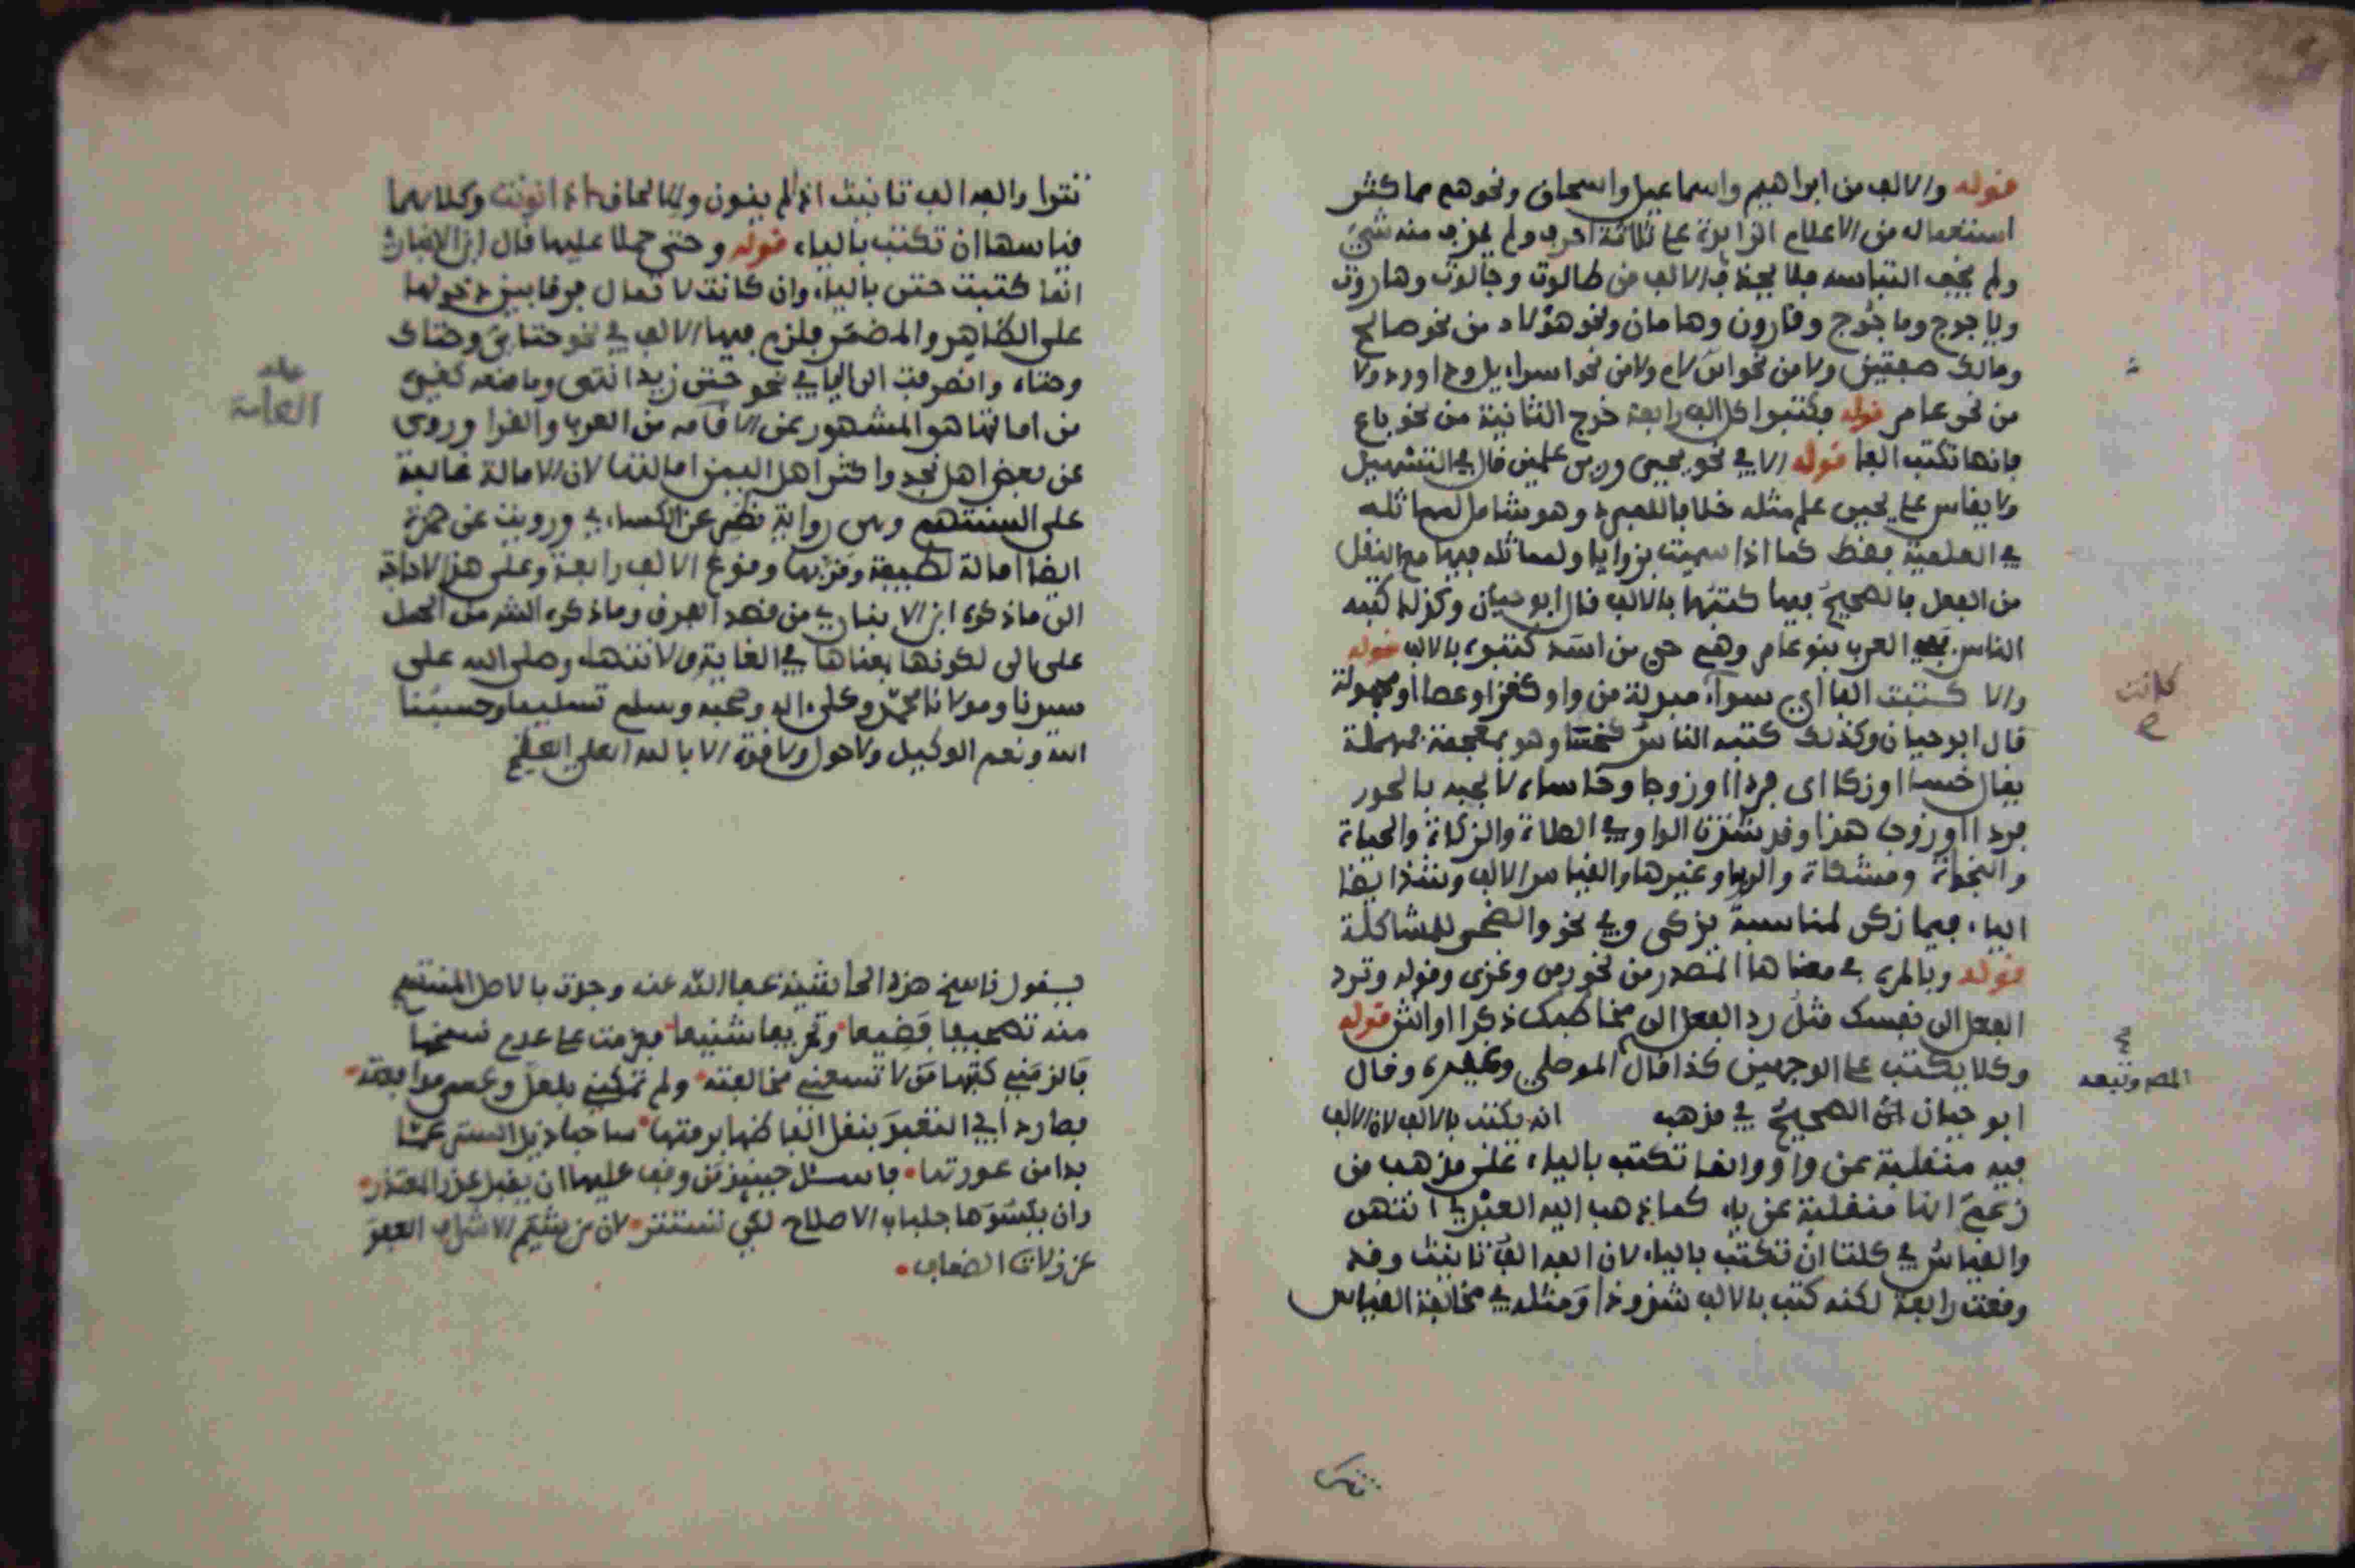 قوله والالف من ابراهيم واسماعيل واسحاق ونحوهم مما كثر
استعماله من الاعلام الزايدة على ثلاثة احرف ولم يحذف منه شيئ
ولم يخف التباسه فلا يحذف الالف من طالوت وجالوت وهاروت
وياجوج وماجوج وقارون وهامان ونحو هؤلاء من نحو صالح
ومالك صفتين ولا من نحو اس لام ولا من نحو اسراءيل وداوود ولا
من نحو عامر قوله وكتبوا كل الف رابعة خرج الثانية من نحو باع
فانها تكتب الفا قوله الا في نحو يحيى وريى علمين قال في التسهيل
ولا يقاس على يحيى علم مثله خلافا للمبرد وهو شامل لمماثله
في العلمية فقط كما اذا سميت بزوايا ولمماثله فيها مع النقل
من الفعل فالصحيح فيها كتبها بالالف قال ابو حيان وكذلك كتبه
الناس العرب بنو عامر وهم حي من اسد كتبوه بالالف قوله
والا كتبت الفا اي سواء مبدلة من واو كغزا وعصا او مجهولة
قال ابو حيان وكذلك كتبه الناس كخسا وهو بمعجمة فمهملة
يقال خسا او زكا اي فردا او زوجا
فردا او زوجا هذا وقد شذت الواو في الصلاة والزكاة والحياة
والنجاة ومشكاة والربا وغيرها والقياس الالف وشذ ايضا
الياء فيما زكى لمناسبة يزكى وفي نحو والضحى للمشاكلة
قوله وبالمرة في معناها المصدر من نحو رمى وغزى وقوله وترد
الفعل الى نفسك مثل رد الفعل الى مخاطبك ذكرا او انثى قوله
وكلا يكتب على الوجهين كذا قال الموصلي وغيره وقال
المص وتبعه
ابو حيان ان الصحيح في مذهب انه يكتب بالالف لان الالف
فيه منقلبة عن واو وانما تكتب بالياء على مذهب من
زعم انها منقلبة عن ياء كما ذهب اليه العبدي انتهى
والقياس في كلتا ان تكتب بالياء لان الفه الف تانيث وقد
وقعت رابعة لكنه كتب بالالف شذوذا ومثله في مخالفة القياس
كانت
تترا والفه الف تانيث اذ لم ينون وللالحاق اذ انونت وكلاهما
قياسها ان تكتب بالياء قوله وحتى حملا عليها قال ابن الانباري
انما كتبت حتى بالياء وان كانت لا تمال فرقا بين دخولها
على الظاهر والمضمر فلزم فيها الالف في نحو حتاي وحتاك
وحتاه وانصرفت الى اليا في نحو حتى زيد انتهى وما منعه كغيره
من امالتها هو المشهور عن القامه من العرب والقرا وروي
العامة
عن بعض اهل نجد واكثر اهل اليمن امالتها لان الامالة غالبة
على السنتهم وهي رواية نصير عن الكساءي ورويت عن حمزة
ايضا امالة لطيفة وقربها وقوع الالف رابعة وعلى هذا لا حاجة
الى ما ذكره ابن الانباري من قصد الفرق وما ذكره الشر من الحمل
على الى لكونها بمعناها في الغاية والانتهاء وصلى الله على
سيدنا ومولانا محمد وعلى اله وصحبه وسلم تسليما وحسبنا
الله ونعم الوكيل ولا حول ولا قوة الا بالله العلي العظيم
يقول ناسخ هذه الحاشية عفا الله عنه وجدت بالاصل المنتسخ
منه تصحيفا فضيعا وتحريفا شنيعا فعزمت على عدم نسخها
فالزمني كتبها من لا تسعني مخالفته ولم تمكني بلعل وعسى موافقته
فصار دابي التعبير بنقل الفاظها برمتها ساحبا ذيل الستر عما
بدا من عورتها فاسئل حينئذ من وقف عليها ان يقبل عذر المعتذر
وان يكسوها جلباب الاصلاح لكي تستتر لان من شيم الاشراف العفو
عن زلات الضعاف